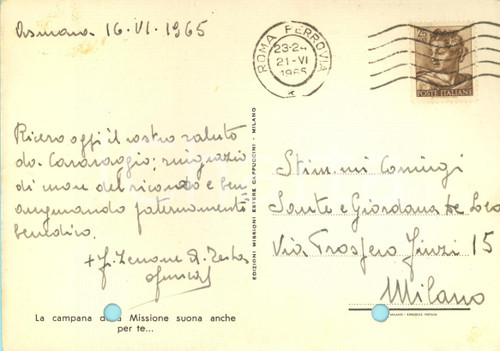 Asmara 16.VI.1965
ROMA FERROVIA
23-24
21-VI
1965
POSTE ITALIANE
Ricevo oggi il vostro saluto
da Caravaggio: ringrazio
di cuore del ricordo e ben
augurando paternamente
benedico.
+ fr. Zenone A. Testa
La campana della Missione suona anche
per te...
EDIZIONI MISSIONI ESTERE CAPPUCCINI - MILANO
Stim.mi Coniugi
Sante e Giordana de Leo
Via Prospero Finzi 15
Milano